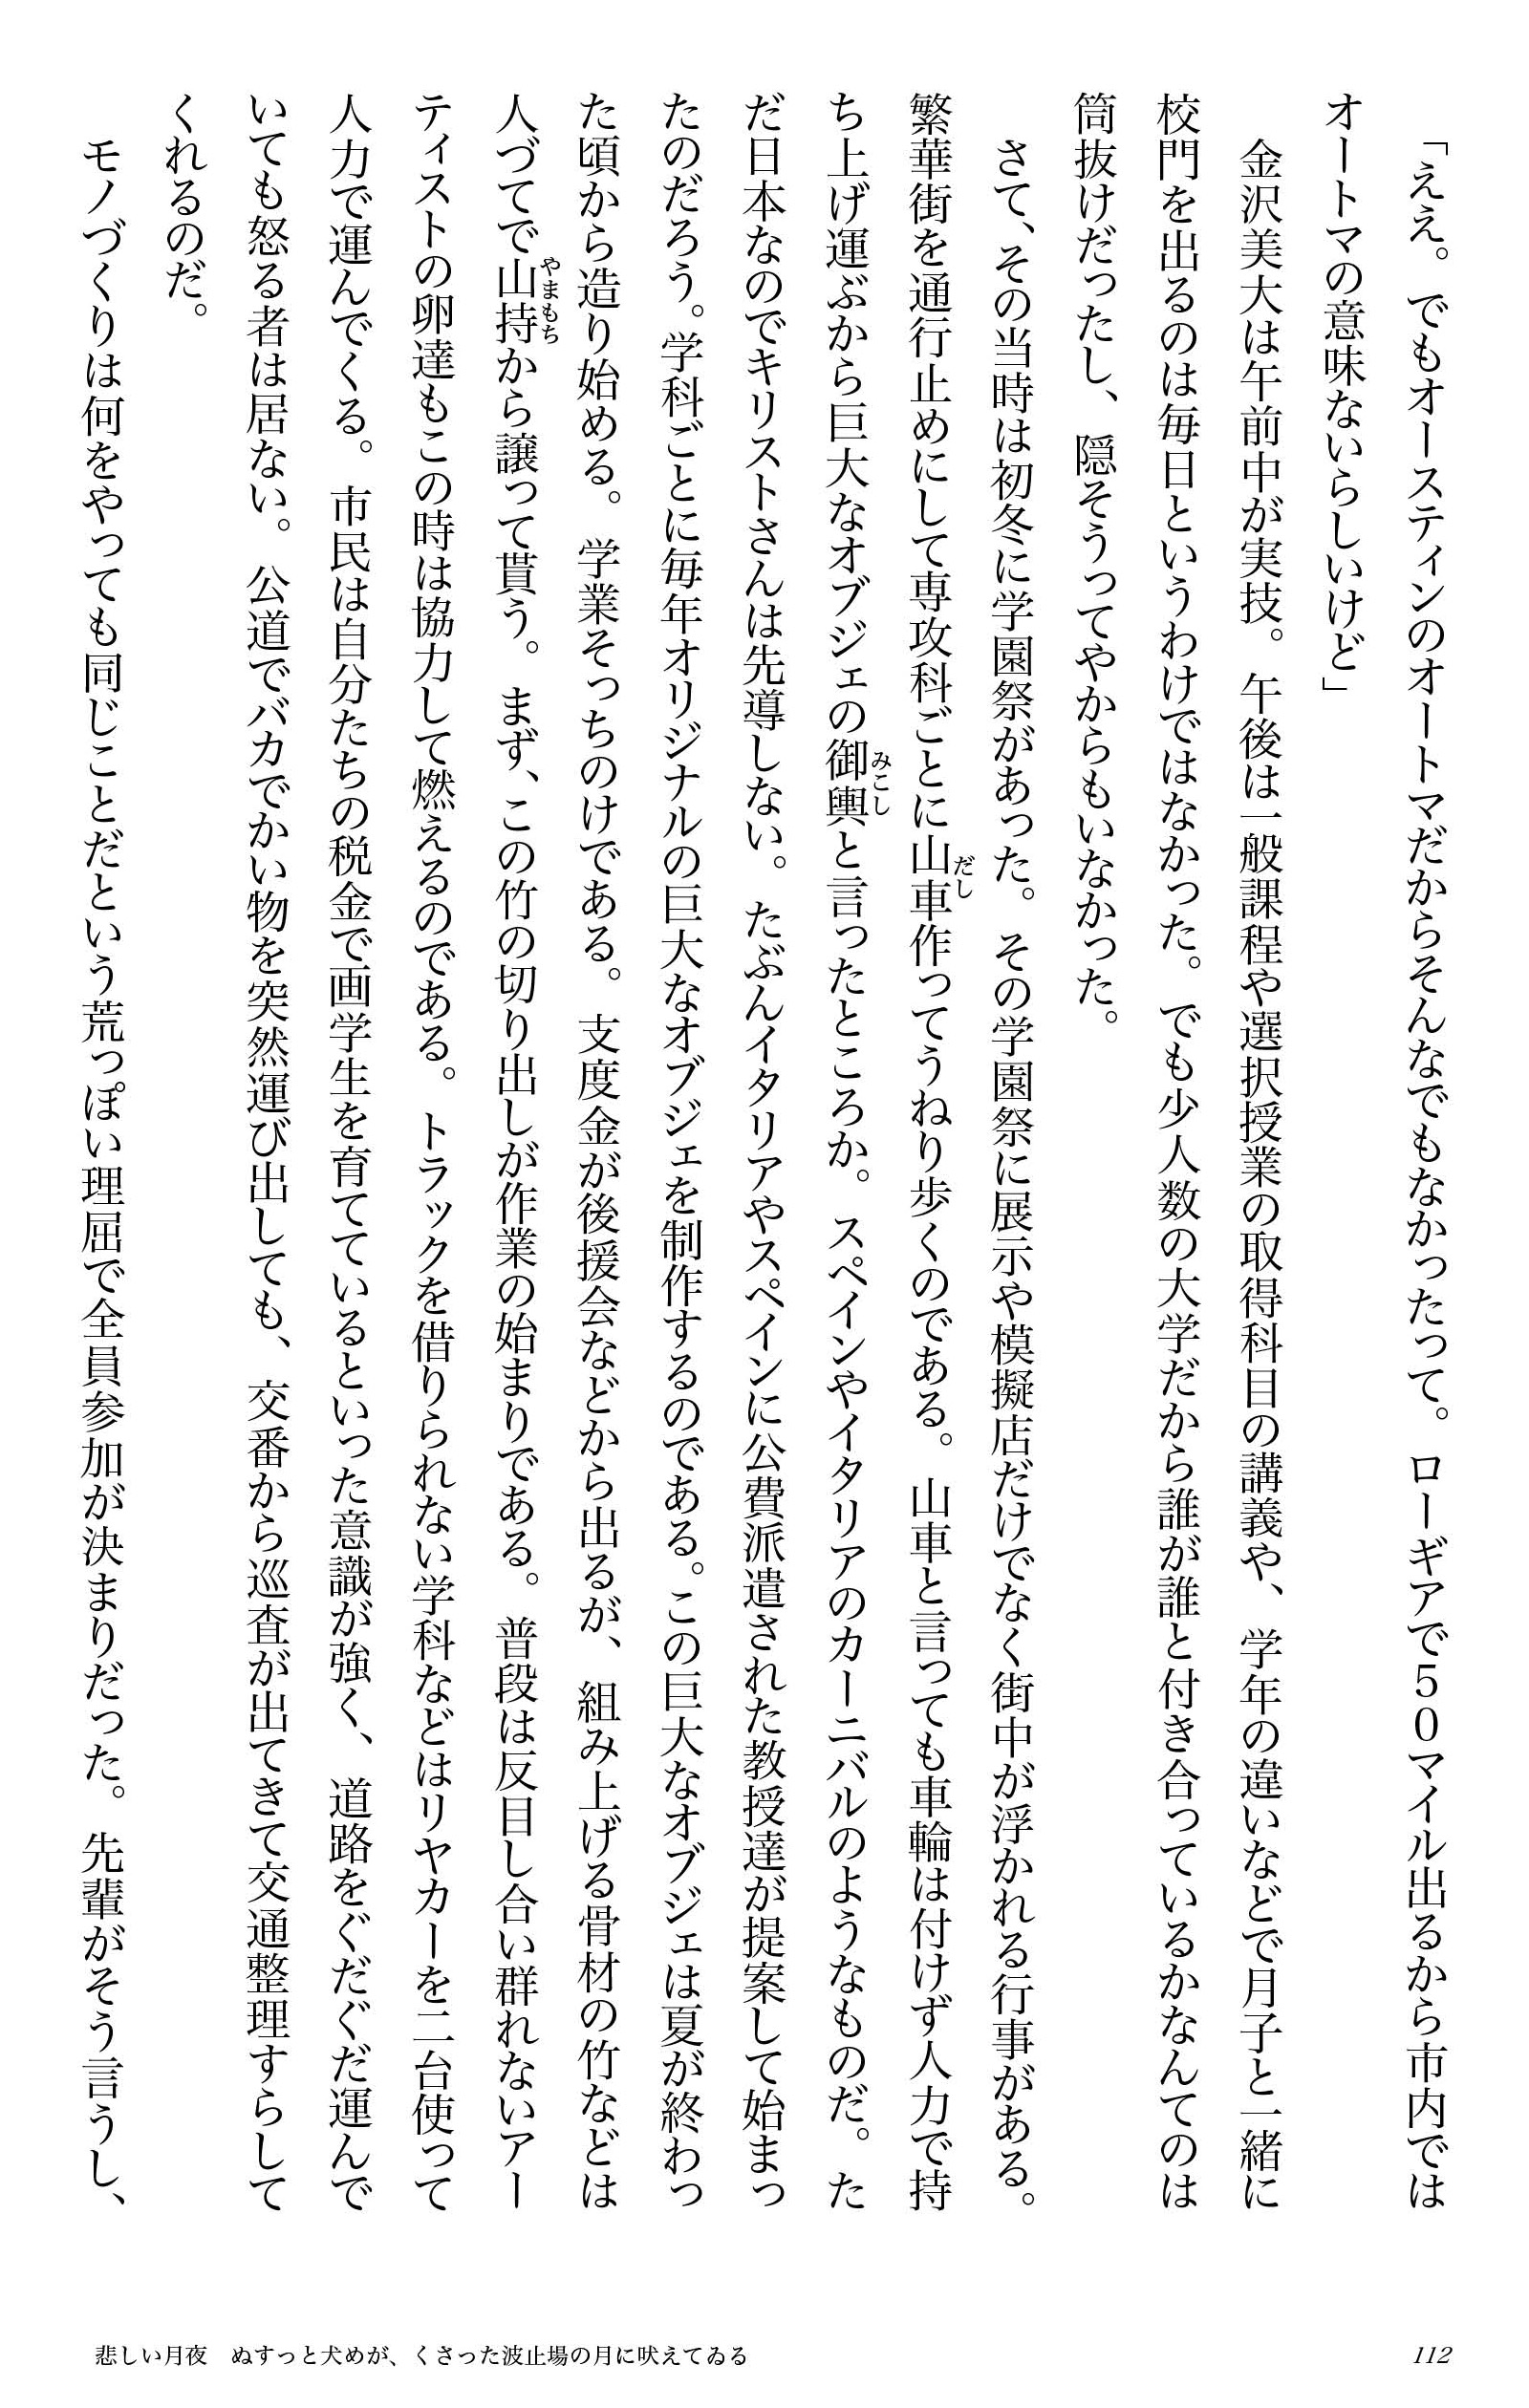 「ええ。でもオースティンのオートマだからそんなでもなかったって。ローギアで50マイル出るから市内では
オートマの意味ないらしいけど」
金沢美大は午前中が実技。午後は一般課程や選択授業の取得科目の講義や、学年の違いなどで月子と一緒に
校門を出るのは毎日というわけではなかった。でも少人数の大学だから誰が誰と付き合っているかなんてのは
筒抜けだったし、隠そうってやからもいなかった。
さて、その当時は初冬に学園祭があった。その学園祭に展示や模擬店だけでなく街中が浮かれる行事がある。
繁華街を通行止めにして専攻科ごとに山車だし作ってうねり歩くのである。山車と言っても車輪は付けず人力で持
ち上げ運ぶから巨大なオブジェの御輿みこしと言ったところか。スペインやイタリアのカーニバルのようなものだ。た
だ日本なのでキリストさんは先導しない。たぶんイタリアやスペインに公費派遣された教授達が提案して始まっ
たのだろう。学科ごとに毎年オリジナルの巨大なオブジェを制作するのである。この巨大なオブジェは夏が終わっ
た頃から造り始める。学業そっちのけである。支度金が後援会などから出るが、組み上げる骨材の竹などは
人づてで山持やまもちから譲って貰う。まず、この竹の切り出しが作業の始まりである。普段は反目し合い群れないアー
ティストの卵達もこの時は協力して燃えるのである。トラックを借りられない学科などはリヤカーを二台使って
人力で運んでくる。市民は自分たちの税金で画学生を育てているといった意識が強く、道路をぐだぐだ運んで
いても怒る者は居ない。公道でバカでかい物を突然運び出しても、交番から巡査が出てきて交通整理すらして
くれるのだ。
モノづくりは何をやっても同じことだという荒っぽい理屈で全員参加が決まりだった。先輩がそう言うし、
悲しい月夜　ぬすっと犬めが、くさった波止場の月に吠えてゐる
112